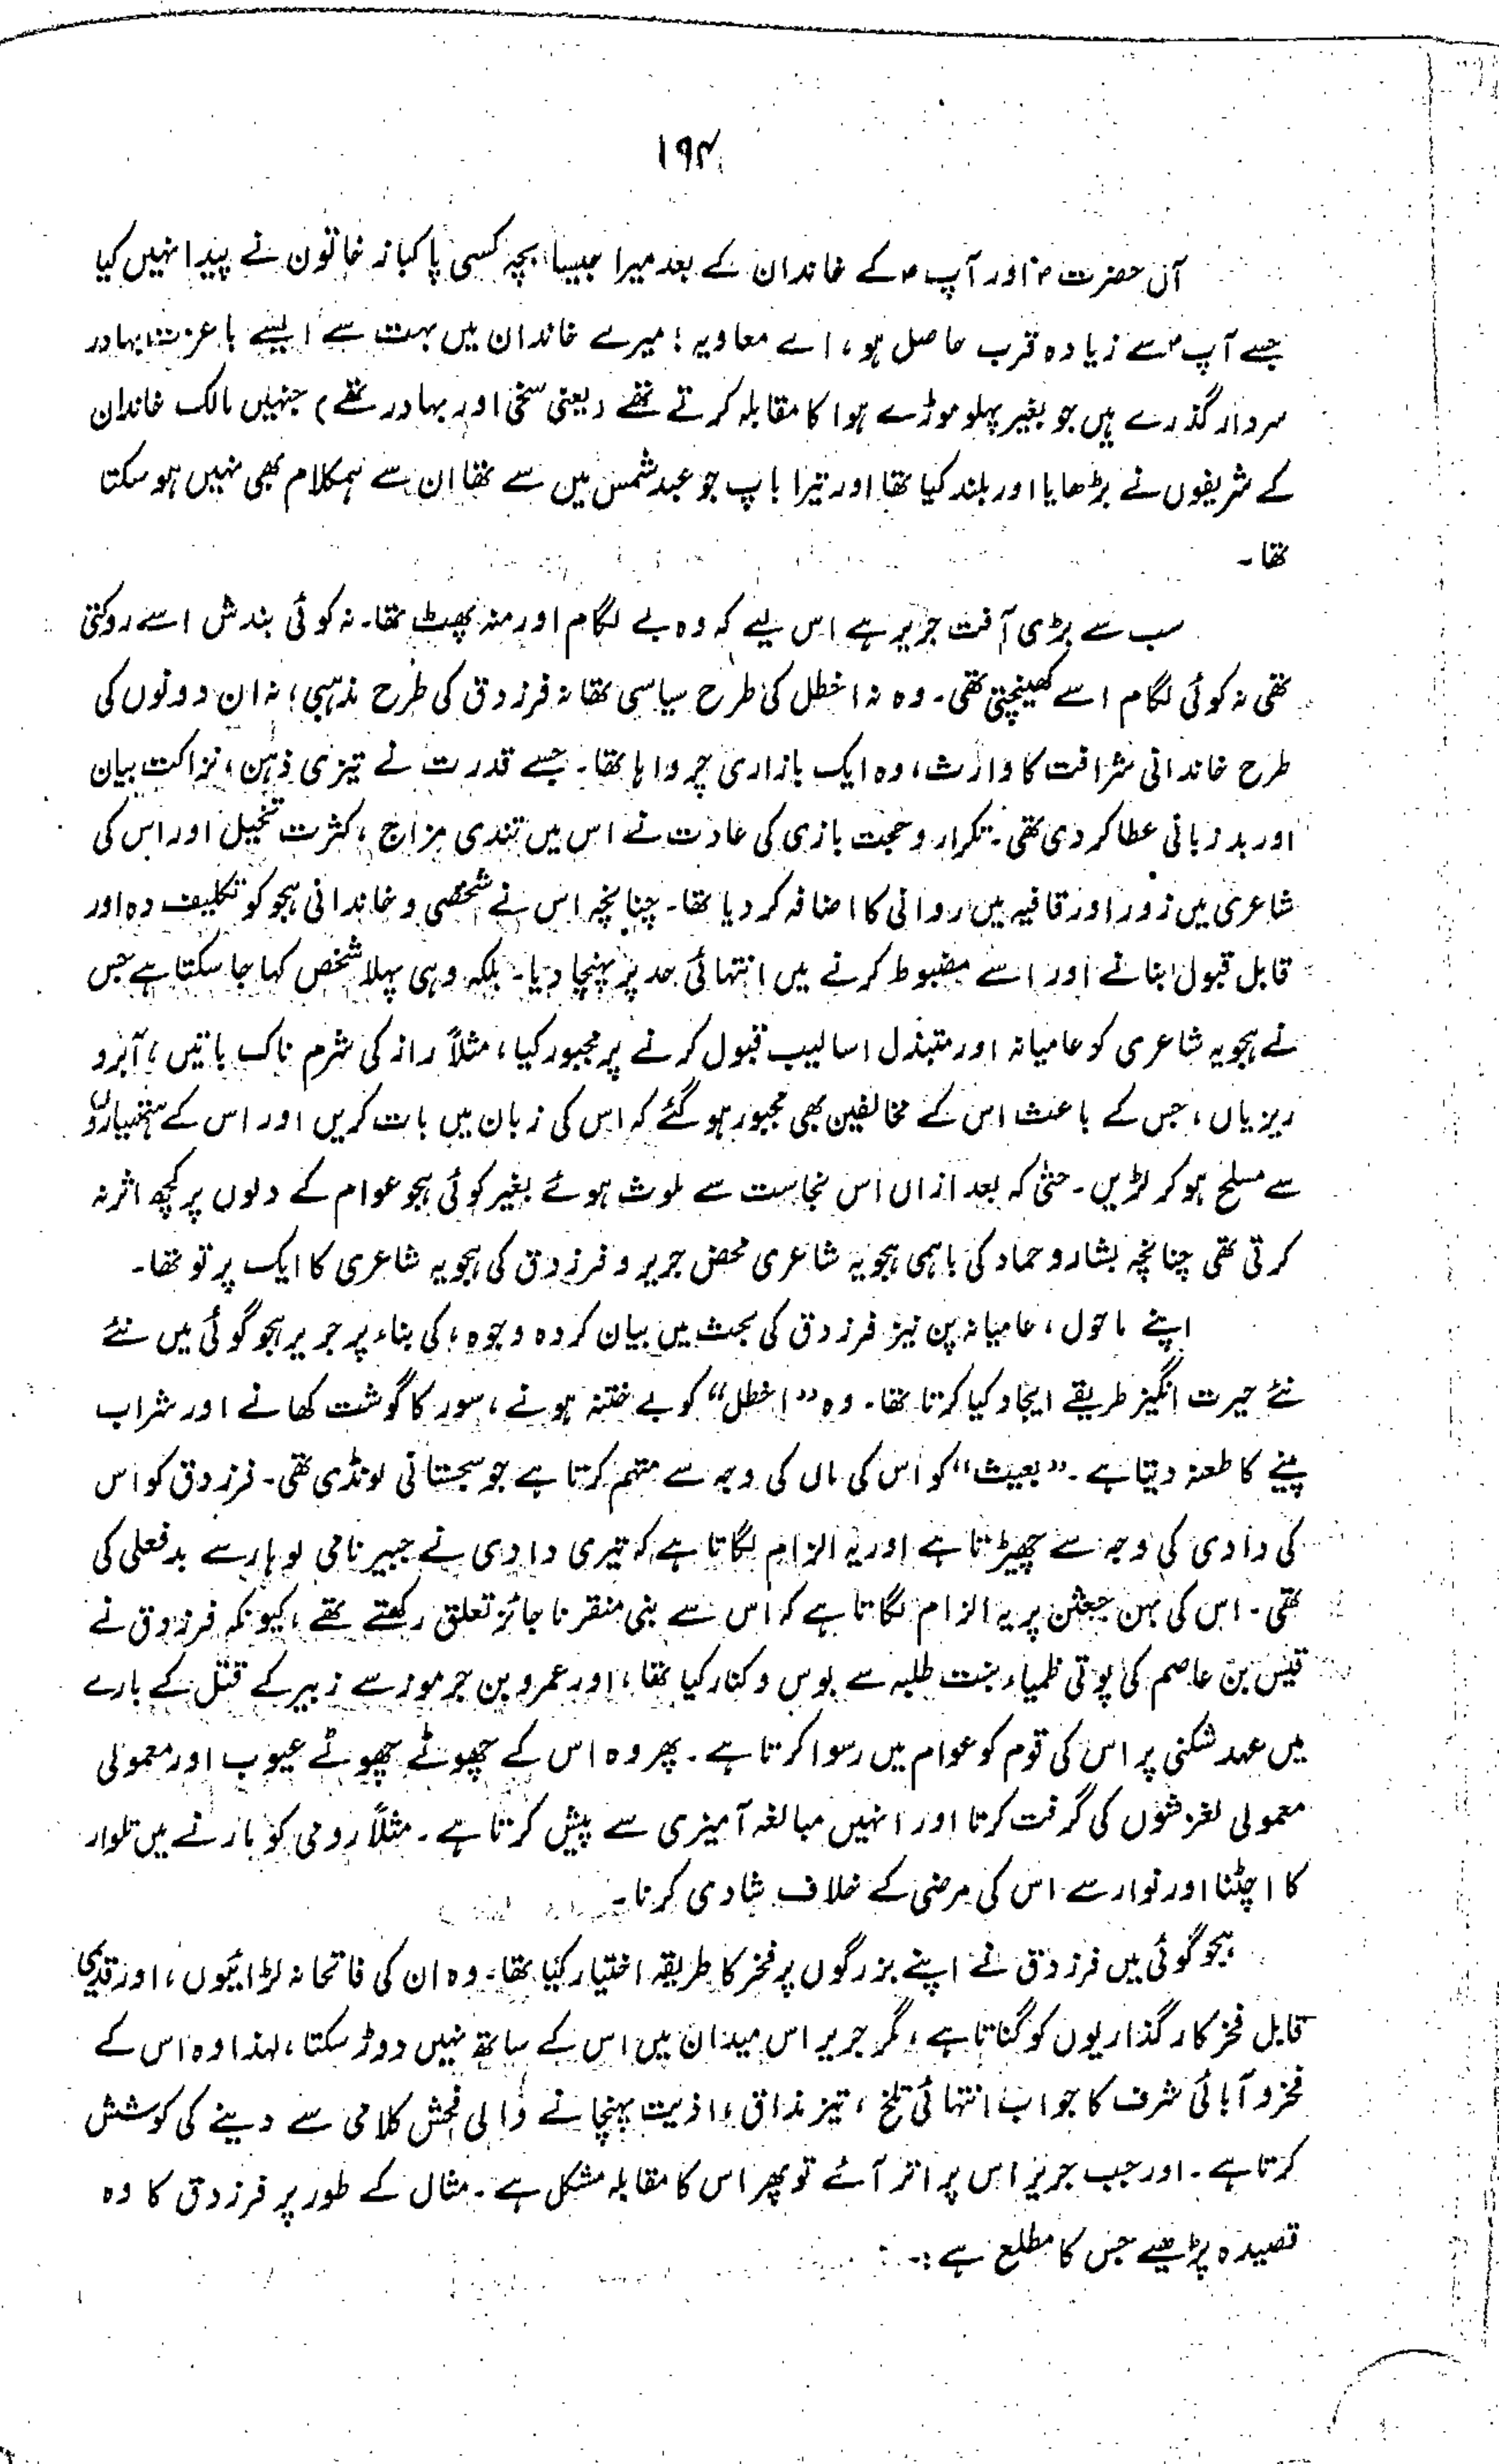 ۱۹۴
آں حضرت ؐ اور آپ ؐ کے خاندان کے بعد میرا جیسا بچہ کسی پاکباز خاتون نے پیدا نہیں کیا
جسے آپ ؐ سے زیادہ قرب حاصل ہو، اے معاویہ! میرے خاندان میں بہت سے ایسے باعزت بہادر
سردار گذرے ہیں جو بغیر پہلو موڑے ہوا کا مقابلہ کرتے تھے (یعنی سخی اور بہادر تھے) جنہیں مالک خاندان
کے شریفوں نے بڑھایا اور بلند کیا تھا اور تیرا باپ جو عبد شمس میں سے تھا ان سے ہمکلام بھی نہیں ہو سکتا
تھا۔
سب سے بڑی آفت جریر ہے اس لیے کہ وہ بے لگام اور منہ پھٹ تھا۔ نہ کوئی بندش اسے روکتی
تھی نہ کوئی لگام اسے کھینچتی تھی۔ وہ نہ اخطل کی طرح سیاسی تھا نہ فرزدق کی طرح مذہبی؛ نہ ان دونوں کی
طرح خاندانی شرافت کا وارث، وہ ایک بازاری چرواہا تھا۔ جسے قدرت نے تیزی ذہن، نزاکت بیان
اور بد زبانی عطا کر دی تھی۔ تکرار و حجت بازی کی عادت نے اس میں تندی مزاج، کثرت تخیل اور اس کی
شاعری میں زور اور قافیہ میں روانی کا اضافہ کر دیا تھا۔ چنانچہ اس نے شخصی و خاندانی ہجو کو تکلیف دہ اور
قابل قبول بنانے اور اسے مضبوط کرنے میں انتہائی حد پر پہنچا دیا۔ بلکہ وہی پہلا شخص کہا جا سکتا ہے جس
نے ہجویہ شاعری کو عامیانہ اور متبذل اسالیب قبول کرنے پر مجبور کیا، مثلاً راز کی شرم ناک باتیں، آبرو
ریزیاں، جس کے باعث اس کے مخالفین بھی مجبور ہو گئے کہ اس کی زبان میں بات کریں اور اس کے ہتھیاروں
سے مسلح ہو کر لڑیں۔ حتیٰ کہ بعد ازاں اس نجاست سے ملوث ہوئے بغیر کوئی ہجو عوام کے دلوں پر کچھ اثر نہ
کرتی تھی چنانچہ بشار و حماد کی باہمی ہجویہ شاعری محض جریر و فرزدق کی ہجویہ شاعری کا ایک پرتو تھا۔
اپنے ماحول، عامیانہ پن نیز فرزدق کی بحث میں بیان کردہ وجوہ، کی بناء پر جریر ہجو گوئی میں نئے
نئے حیرت انگیز طریقے ایجاد کیا کرتا تھا۔ وہ "اخطل" کو بے ختنہ ہونے، سور کا گوشت کھانے اور شراب
پینے کا طعنہ دیتا ہے۔ "بعیث" کو اس کی ماں کی وجہ سے متہم کرتا ہے جو سجستانی لونڈی تھی۔ فرزدق کو اس
کی دادی کی وجہ سے چھیڑتا ہے اور یہ الزام لگاتا ہے کہ تیری دادی نے جبیر نامی لوہار سے بدفعلی کی
تھی۔ اس کی بہن جعثن پر یہ الزام لگاتا ہے کہ اس سے بنی منقر ناجائز تعلق رکھتے تھے، کیونکہ فرزدق نے
قیس بن عاصم کی پوتی ظمیاء بنت طلبہ سے بوس و کنار کیا تھا، اور عمرو بن جرموز سے زبیر کے قتل کے بارے
میں عہد شکنی پر اس کی قوم کو عوام میں رسوا کرتا ہے۔ پھر وہ اس کے چھوٹے چھوٹے عیوب اور معمولی
معمولی لغزشوں کی گرفت کرتا اور انہیں مبالغہ آمیزی سے پیش کرتا ہے۔ مثلاً رومی کو مارنے میں تلوار
کا اچٹنا اور نوار سے اس کی مرضی کے خلاف شادی کرنا۔
ہجو گوئی میں فرزدق نے اپنے بزرگوں پر فخر کا طریقہ اختیار کیا تھا۔ وہ ان کی فاتحانہ لڑائیوں، اور قدیمی
قابل فخر کارگذاریوں کو گناتا ہے، مگر جریر اس میدان میں اس کے ساتھ نہیں دوڑ سکتا، لہذا وہ اس کے
فخر و آبائی شرف کا جواب انتہائی تلخ، تیز مذاق، اذیت پہنچانے والی فحش کلامی سے دینے کی کوشش
کرتا ہے۔ اور جب جریر اس پر اتر آئے تو پھر اس کا مقابلہ مشکل ہے۔ مثال کے طور پر فرزدق کا وہ
قصیدہ پڑھیے جس کا مطلع ہے:۔